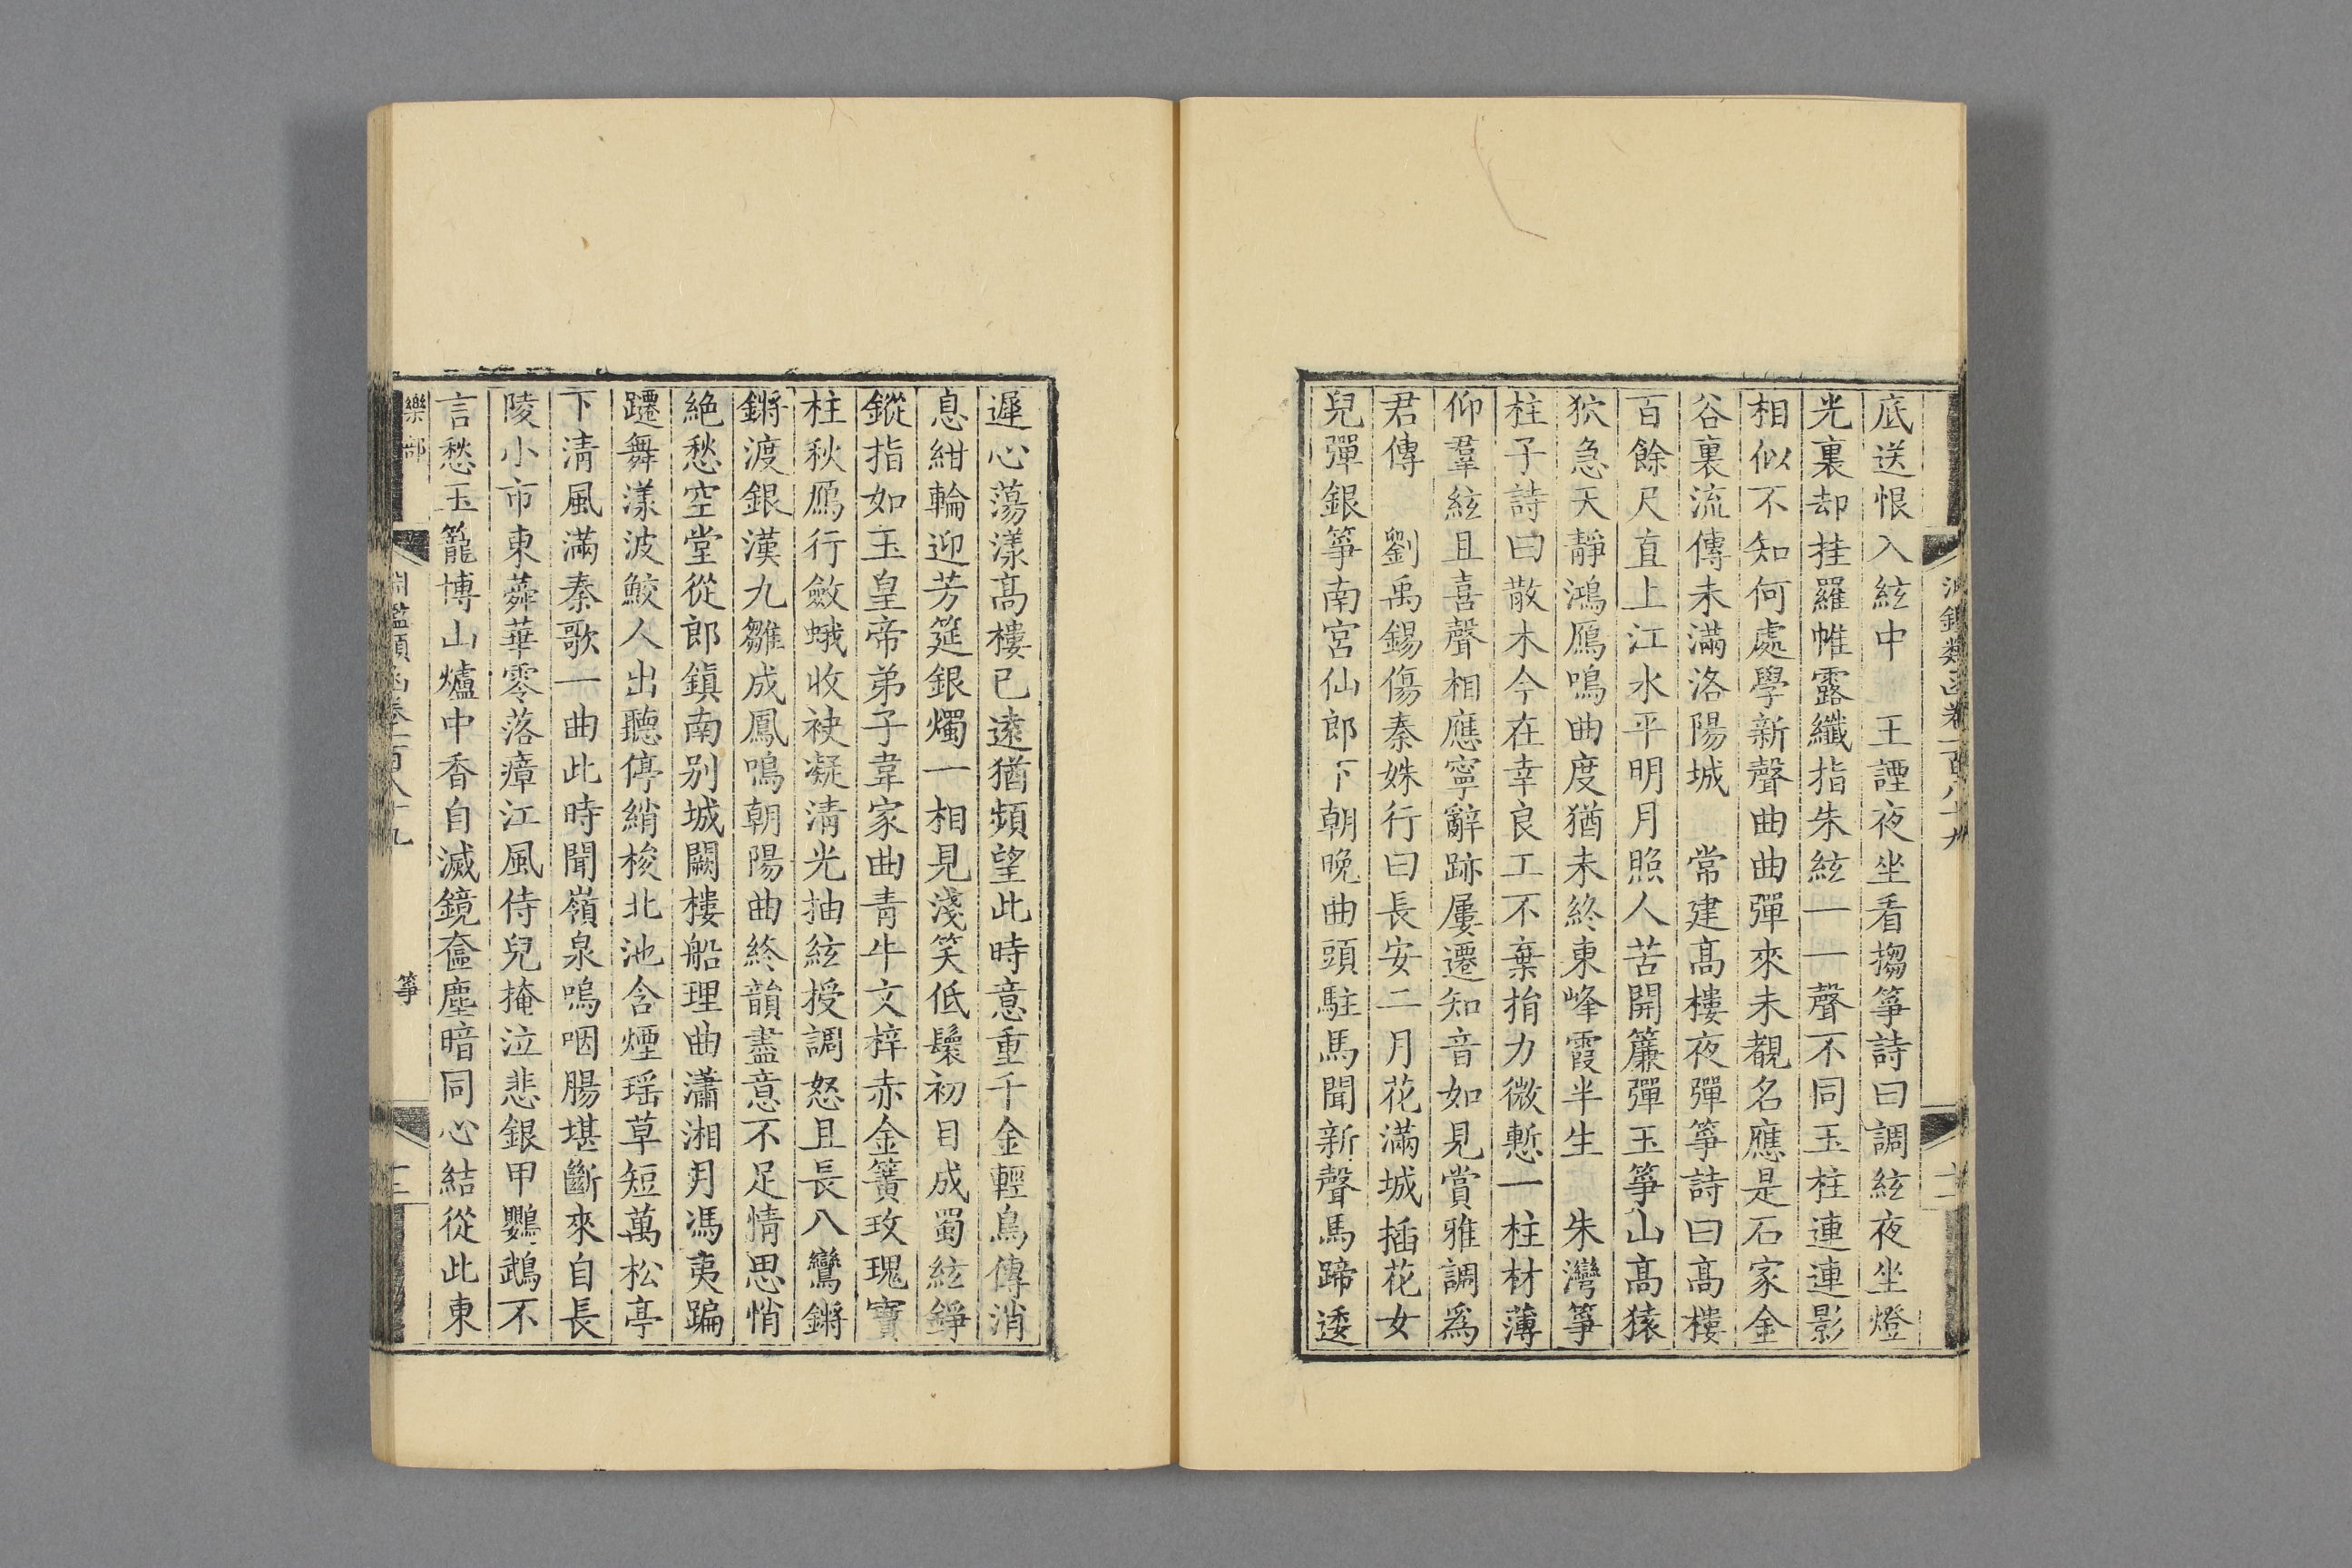 底送恨入絃中　王諲夜坐看搊箏詩曰調絃夜坐燈
光裏却挂羅帷露纖指朱絃一一聲不同玉柱連連影
相似不知何處學新聲曲曲彈來未覩名應是石家金
谷裏流傳未滿洛陽城　常建髙樓夜彈箏詩曰髙樓
百餘尺直上江水平明月照人苦開簾彈玉箏山髙猿
狖急天靜鴻鴈鳴曲度猶未終東峰霞半生　朱灣箏
柱子詩曰散木今在幸良工不棄捐力微慙一柱材薄
仰羣絃且喜聲相應寧辭跡屢遷知音如見賞雅調爲
君傳　劉禹錫傷秦姝行曰長安二月花滿城插花女
兒彈銀箏南宮仙郎下朝晚曲頭駐馬聞新聲馬蹄逶
遲心蕩漾髙樓已遠猶頻望此時意重千金輕鳥傳消
息紺輪迎芳筵銀燭一相見淺笑低鬟初目成蜀絃錚
鏦指如玉皇帝弟子韋家曲青牛文梓赤金簧玫瑰寶
柱秋鴈行斂蛾收袂凝清光抽絃授調怒且長八鸞鏘
鏘渡銀漢九雛成鳳鳴朝陽曲終韻盡意不足情思悄
絶愁空堂從郎鎮南别城闕樓船理曲瀟湘月馮夷蹁
躚舞漾波鮫人出聽停綃梭北池含煙瑶草短萬松亭
下清風滿秦歌一曲此時聞嶺泉嗚咽腸堪斷來自長
陵小市東蕣華零落瘴江風侍兒掩泣悲銀甲鸚鵡不
言愁玉籠博山爐中香自滅鏡奩塵暗同心結從此東
樂部
箏